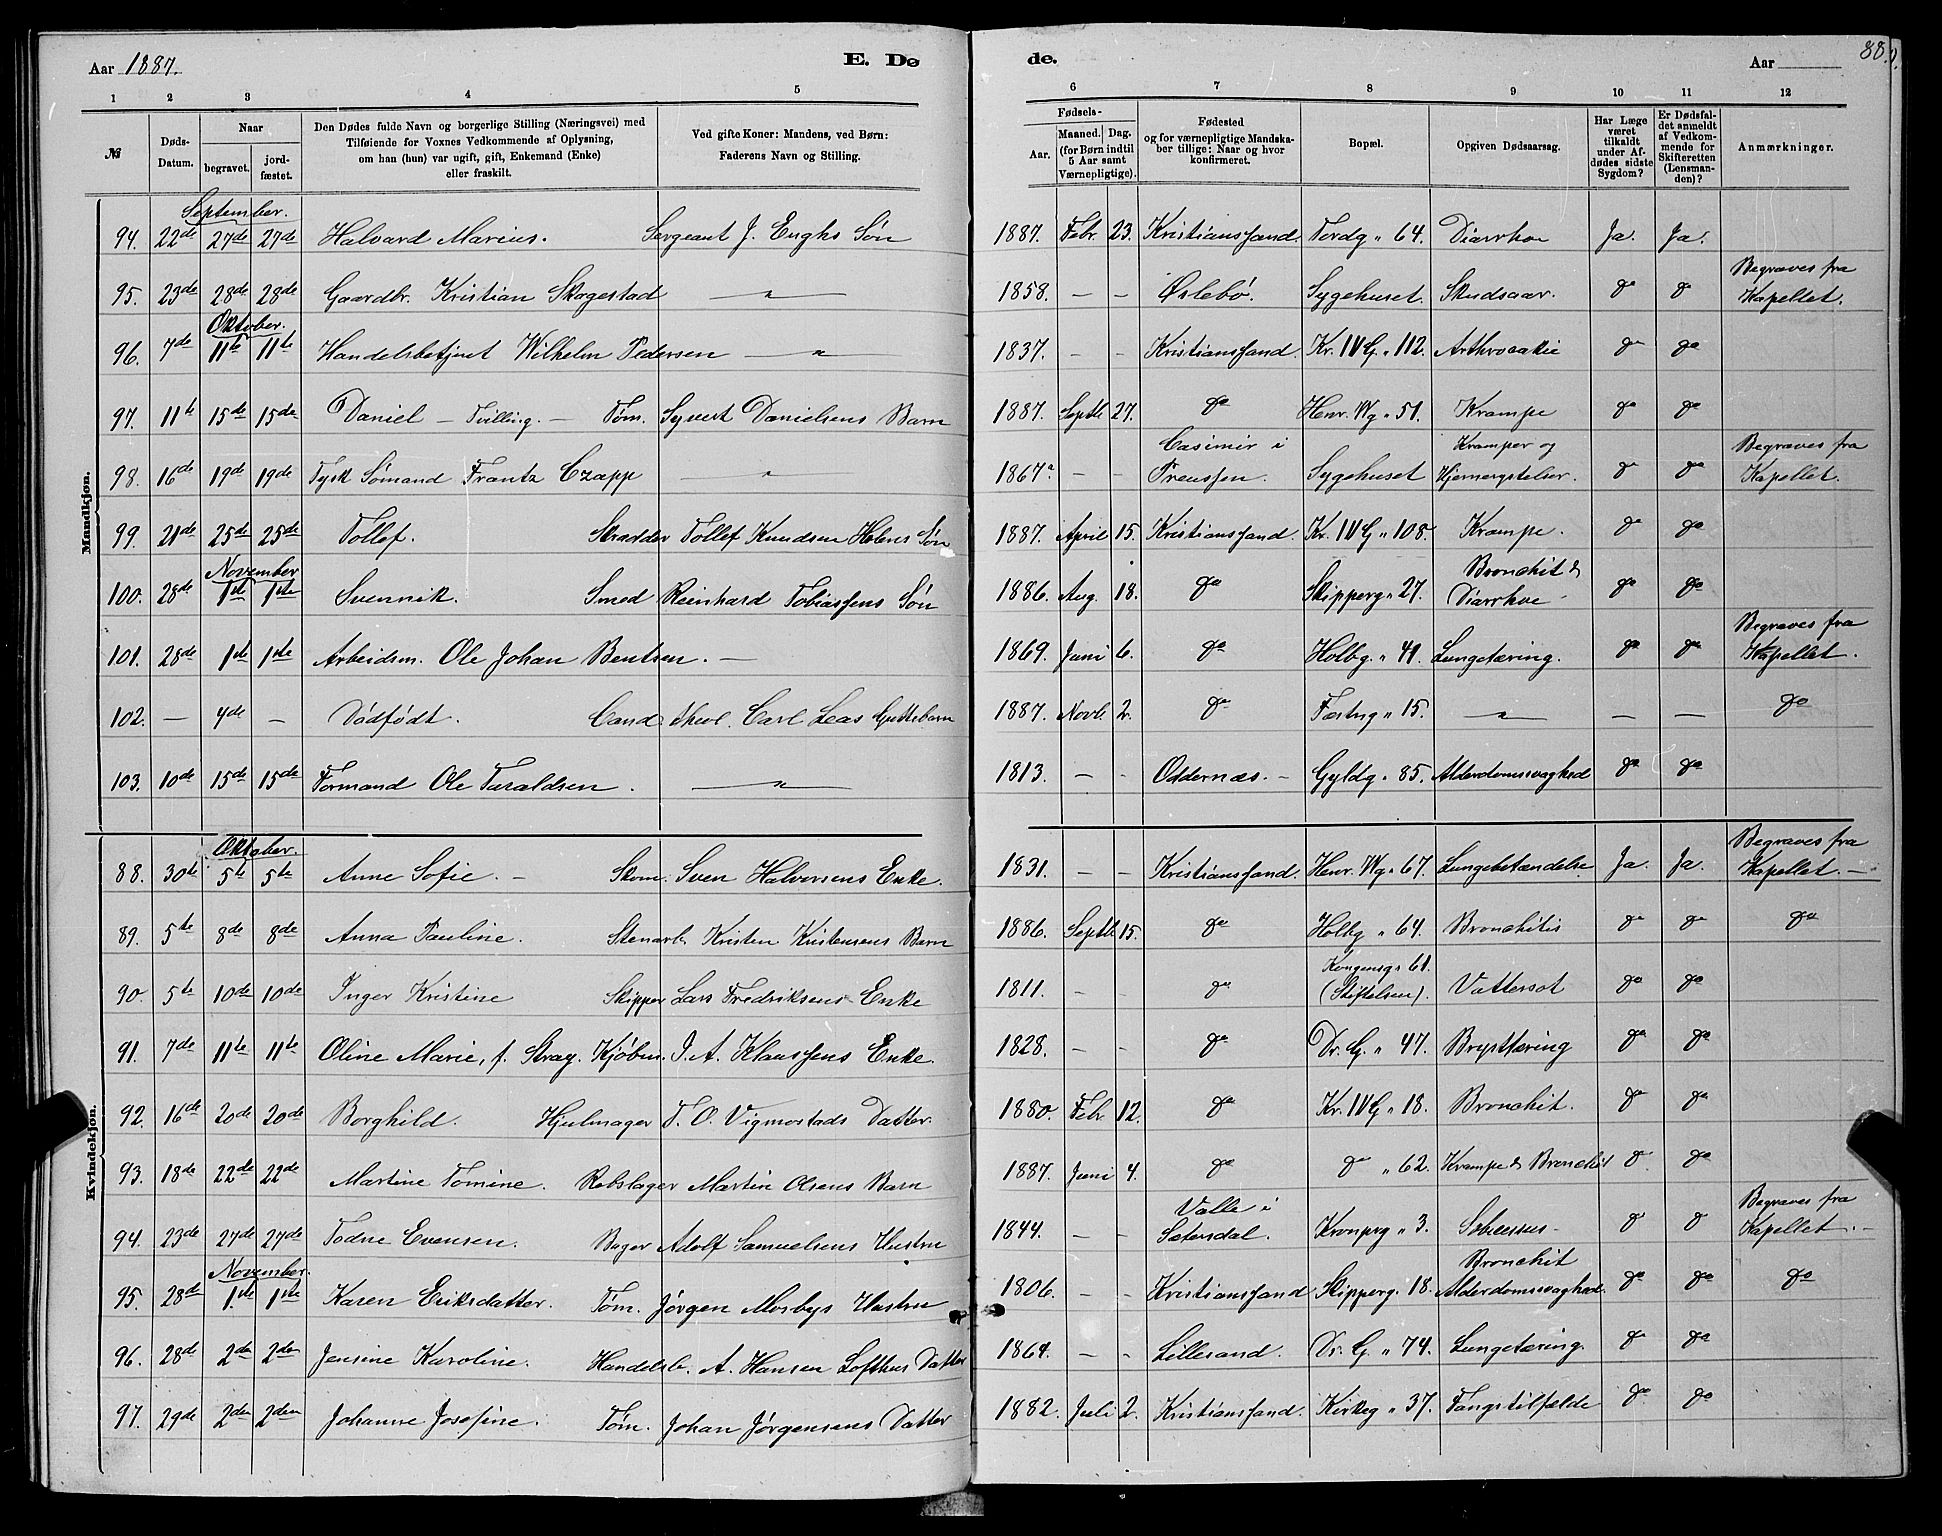 Aar 1887.
E. Dø
de.
Aar
88.
1 2 3 4 5 6 7 8 9 10 11 12
№
Døds-
Datum.
Naar
begravet.
jord-
fæstet.
Den Dødes fulde Navn og borgerlige Stilling (Næringsvei) med
Tilføiende for Voxnes Vedkommende af Oplysning,
om han (hun) var ugift, gift, Enkemand (Enke)
eller fraskilt.
Ved gifte Koner: Mandens, ved Børn:
Faderens Navn og Stilling.
Fødsels-
Aar.
Maaned. Dag.
(for Børn indtil
5 Aar samt
Værnepligtige).
Fødested
og for værnepligtige Mandska-
ber tillige: Naar og hvor
konfirmeret.
Bopæl.
Opgiven Dødsaarsag.
Har Læge
været
tilkaldt
under Af-
dødes sidste
Sygdom?
Er Dødsfal-
det anmeldt
af Vedkom-
mende for
Skifteretten
(Lensman-
den)?
Anmærkninger.
Mandkjøn.
September.
94. 22de 27de 27de Halvard Marius. Sergeant J. Enghs Søn 1887. Febr. 23. Kristianssand. Tordg. " 64. Diarrhoe Ja. Ja.
95. 23de 28de 28de Gaardbr. Kristian Skogestad — " — 1858. — — Øslebö. Sygehuset. Skudsaar. do do Begraves fra Kapellet.
Oktober.
96. 7de 11te 11te Handelsbetjent Wilhelm Pedersen — " 1837. - - Kristianssand. Kr. IV G. " 112. Arthrocakie do do
97. 11te 15de 15de Daniel — Tvilling. — Tøm. Syvert Danielsens Barn 1887. Septb. 27. do Henr. Wg. " 51. Krampe do do
98. 16de 19de 19de Tysk Sømand Frantz Czapp — " — 1867. - - Casimir i Preussen. Sygehuset Kramper og do do Begraves fra Kapellet.
99. 21de 25de 25de Tollef. Skrædder Tollef Knudsen Holens Søn 1887. April 15. Kristianssand. Kr. IV G. " 108. Krampe. do do
November
100. 28de 1ste 1ste Svennik. Smed Reinhard Tobiassens Søn 1886. Aug. 18. do Skipperg. " 27. Bronchit & Diarrhoe - do do
101. 28de 1ste 1ste Arbeidsm. Ole Johan Bentsen. — 1869. Juni 6. do Holbg. " 41. Lungetæring. do do Begraves fra Kapellet.
102. — 4de — Dödfödt. Cand. theol. Carl Leas Guttebarn 1887. Novb. 2. do Fæstng. " 15. — " — — — do
103. 10de 15de 15de Formand Ole Taraldsen. — " — 1813. — - Oddernæs. — Gyldg. " 85. Alderdomssvaghed do do
Kvindekjøn.
Oktober.
88. 30te 5te 5te Anne Sofie. — Skom. Sven Halvorsens Enke. 1831. — — Kristianssand. Henr. Wg. " 67. Lungebetændelse Ja. Ja. Begraves fra Kapellet. —
89. 5te 8de 8de Anna Pauline. Stenarb. Kristen Kristensens Barn 1886. Septb. 15. do Holbg. " 64. Bronchitis do do do
90. 5te 10de 10de Inger Kristine Skipper Lars Fredriksens Enke 1811. — - do Kongensg. " 61. (Stiftelsen). Vattersot do do
91. 7de 11te 11te Oline Marie, f. Stray. Kjøbm. J. A. Klaussens Enke. 1828. — — do Dr. G. " 47. Brysttæring do do
92. 16de 20de 20de Borghild. Hjulmager T. O. Vigmostads Datter. 1880. Febr. 12. do Kr. IV G. " 18. Bronchit. do do
93. 18de 22de 22de Martine Tomine. Rebslager Martin Olsens Barn 1887. Juni 4. do do " 62. Krampe & Bronchit do. do
94. 23de 27de 27de Todne Evensen. Bager Adolf Samuelsens Hustru 1844. — — Valle i Sætersdal. Kronprg. " 3. do do Begraves fra Kapellet. —
November.
95. 28de 1ste 1ste Karen Eriksdatter. Tøm. Jørgen Mosbys Hustru 1806. — — Kristianssand Skipperg. 18. Bronchit Alderdomssvaghed. do do do
96. 28de 2den 2den Jensine Karoline. Handelsb. A. Hansen Lofthus Datter 1864. — — Lillesand. Dr. G. " 74. Lungetæring. do do
97. 29de 2den 2den Johanne Josefine. Tøm. Johan Jørgensens Datter 1882. Juli 2. Kristianssand. Kirkeg. " 37. Fangstilfælde do do